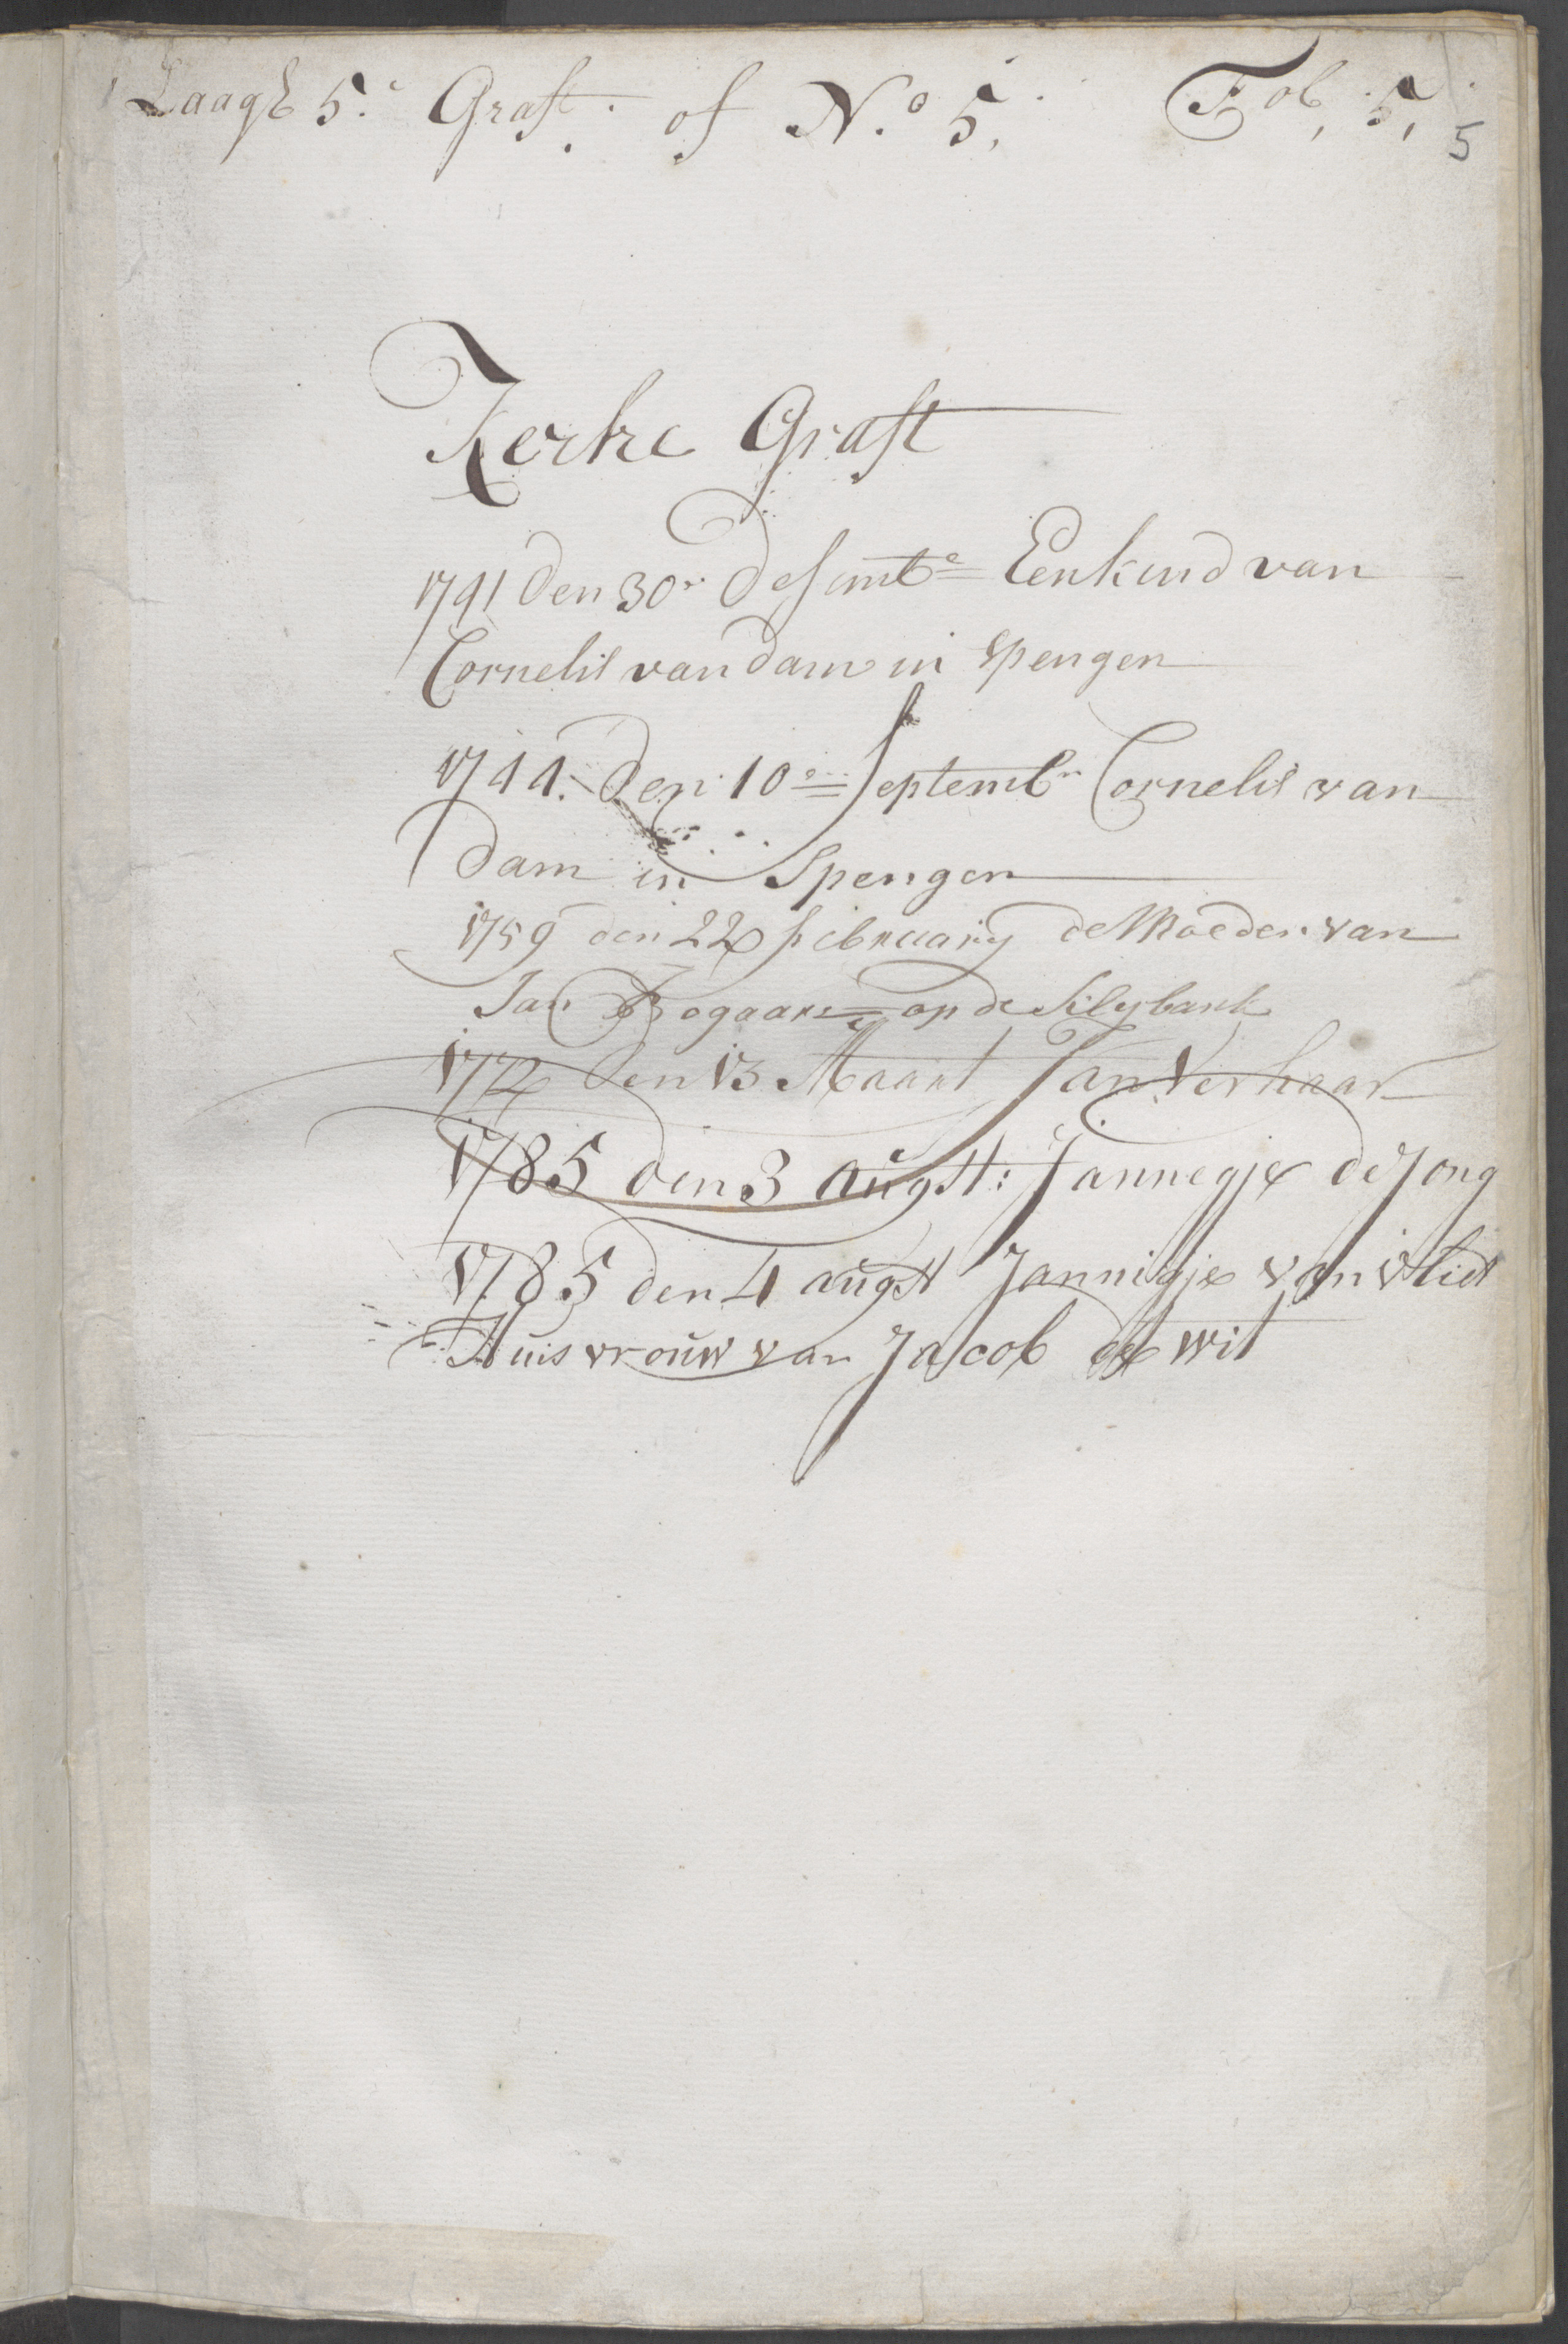 Laage 5.e Graft. of N.o 5. Fol, 5, 5
Kerke Graft
1741 den 30.e desemb.e Een kind van
Cornelis van dam in Spengen
1744. den 10.e Septemb.r Cornelis van
dam in Spengen
1759 den 22 february de Moeder van
Jan Bogaars op de
1772 den 13 Maart Jan Verhaar
1785 den 3 augst: Jannegje de Jong
1785 den 4 augst Jannigje van vliet
Huis vrouw van Jacob de wit